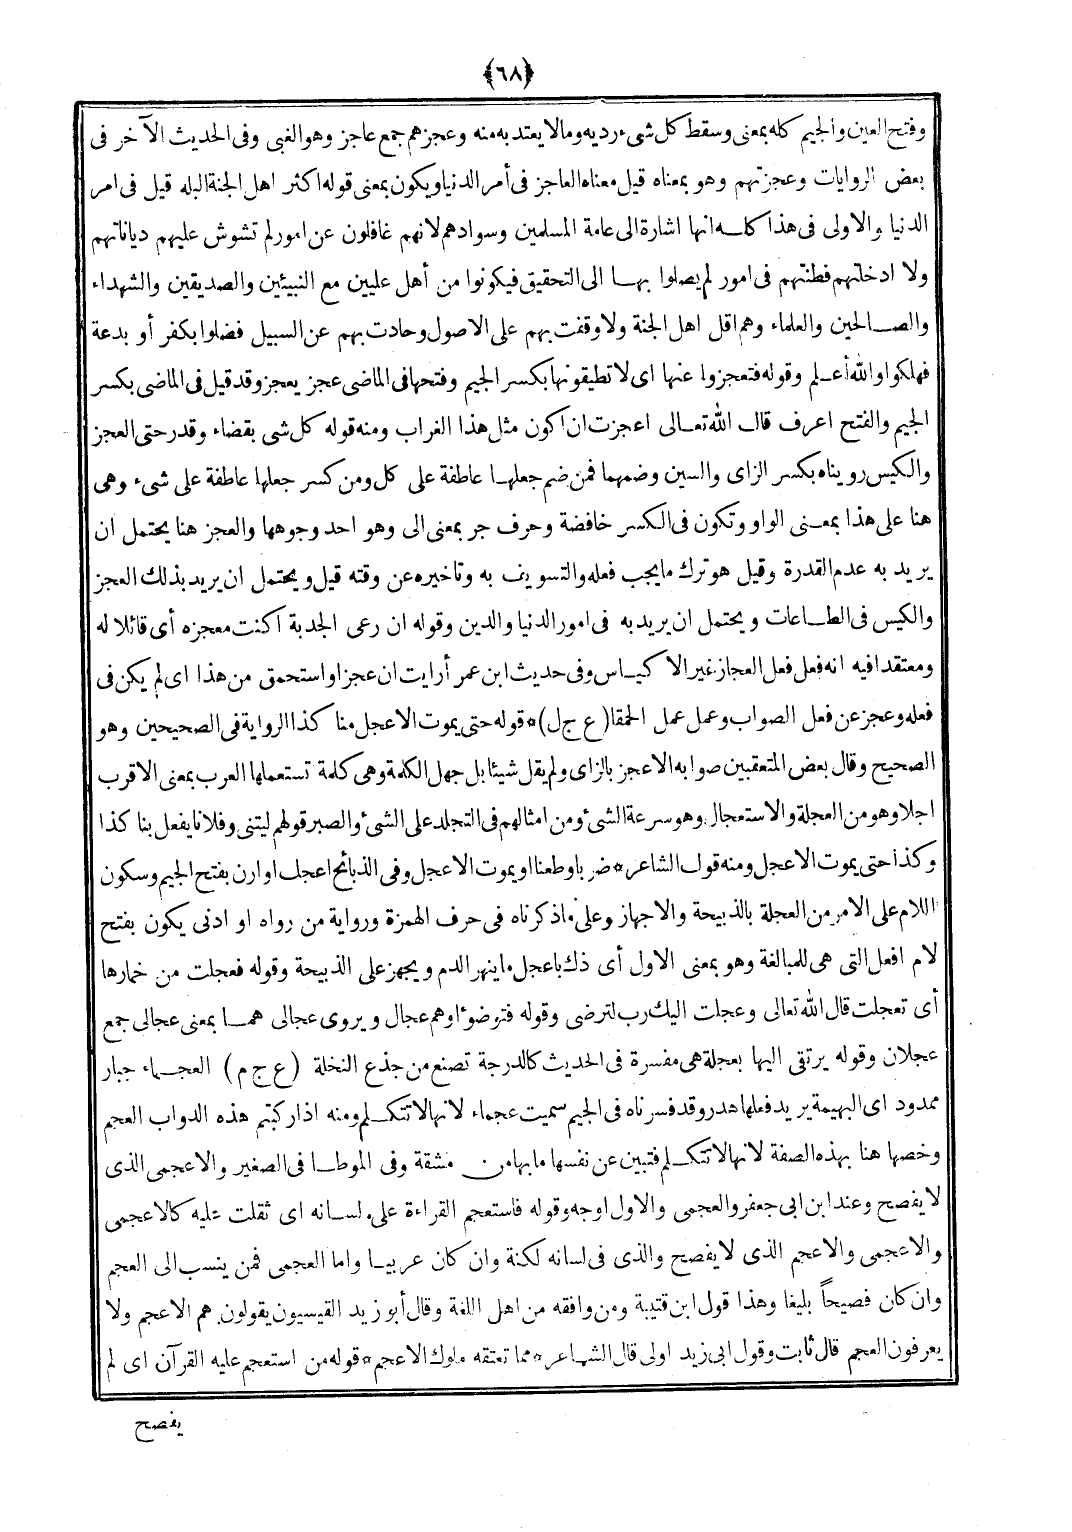 ﴿٦٨﴾
وفتح العين والجيم كله بمعنى وسقط كل شىء رديه وما لا يعتد به منه وعجزهم جمع عاجز وهو الغبى وفى الحديث الآخر فى
بعض الروايات وعجزتهم وهو بمعناه قيل معناه العاجز فى أمر الدنيا ويكون بمعنى قوله اكثر اهل الجنة البله قيل فى امر
الدنيا والاولى فى هذا كله انها اشارة الى عامة المسلمين وسوادهم لانهم غافلون عن امور لم تشوش عليهم دياناتهم
ولا ادخلتهم فطنتهم فى امور لم يصلوا بها الى التحقيق فيكونوا من أهل عليين مع النبيئين والصديقين والشهداء
والصالحين والعلماء وهم اقل اهل الجنة ولا وقفت بهم على الاصول وحادت بهم عن السبيل فضلوا بكفر أو بدعة
فهلكوا والله أعلم وقوله فتعجزوا عنها اى لا تطيقونها بكسر الجيم وفتحها فى الماضى عجز يعجز وقد قيل فى الماضى بكسر
الجيم والفتح اعرف قال الله تعالى اعجزت ان اكون مثل هذا الغراب ومنه قوله كل شى بقضاء وقدر حتى العجز
والكيس رويناه بكسر الزاى والسين وضمهما فمن ضم جعلها عاطفة على كل ومن كسر جعلها عاطفة على شىء وهى
هنا على هذا بمعنى الواو وتكون فى الكسر خافضة وحرف جر بمعنى الى وهو احد وجوهها والعجز هنا يحتمل ان
يريد به عدم القدرة وقيل هو ترك ما يجب فعله والتسويف به وتاخيره عن وقته قيل ويحتمل ان يريد بذلك العجز
والكيس فى الطاعات ويحتمل ان يريد به فى امور الدنيا والدين وقوله ان رعى الجدبة اكنت معجزه أى قائلا له
ومعتقدا فيه انه فعل فعل العجاز غير الاكياس وفى حديث ابن عمر أرايت ان عجز او استحمق من هذا اى لم يكن فى
فعله وعجز عن فعل الصواب وعمل عمل الحمقا (ع ج ل) * قوله حتى يموت الاعجل منا كذا الرواية فى الصحيحين وهو
الصحيح وقال بعض المتعقبين صوابه الاعجز بالزاى ولم يقل شيئا بل جهل الكلمة وهى كلمة تستعملها العرب بمعنى الاقرب
اجلا وهو من العجلة والاستعجال وهو سرعة الشئ ومن امثالهم فى التجلد على الشئ والصبر قولهم ليتنى وفلانا يفعل بنا كذا
وكذا حتى يموت الاعجل ومنه قول الشاعر * ضربا وطعنا او يموت الاعجل وفى الذبائح اعجل او ارن بفتح الجيم وسكون
اللام على الامر من العجلة بالذبيحة والاجهاز وعلى ما ذكرناه فى حرف الهمزة ورواية من رواه او ادنى يكون بفتح
لام افعل التى هى للمبالغة وهو بمعنى الاول أى ذلك باعجل ما ينهر الدم ويجهز على الذبيحة وقوله فعجلت من خمارها
أى تعجلت قال الله تعالى وعجلت اليك رب لترضى وقوله فتوضؤا وهم عجال ويروى عجالى هما بمعنى عجالى جمع
عجلان وقوله يرتقى اليها بعجلة هى مفسرة فى الحديث كالدرجة تصنع من جذع النخلة (ع ج م) العجماء جبار
ممدود اى البهيمة يريد فعلها هدر وقد فسرناه فى الجيم سميت عجماء لانها لا تتكلم ومنه اذا ركبتم هذه الدواب العجم
وخصها هنا بهذه الصفة لانها لا تتكلم فتبين عن نفسها ما بها من مشقة وفى الموطا فى الصغير والاعجمى الذى
لا يفصح وعند ابن ابى جعفر والعجمى والاول اوجه وقوله فاستعجم القراءة على لسانه اى ثقلت عليه كالاعجمى
والاعجمى والاعجم الذى لا يفصح والذى فى لسانه لكنة وان كان عربيا واما العجمى فمن ينسب الى العجم
وان كان فصيحاً بليغا وهذا قول ابن قتيبة ومن وافقه من اهل اللغة وقال أبو زيد القيسيون يقولون هم الاعجم ولا
يعرفون العجم قال ثابت وقول ابى زيد اولى قال الشاعر * مما تعتقه ملوك الاعجم * قوله من استعجم عليه القرآن اى لم
يفصح